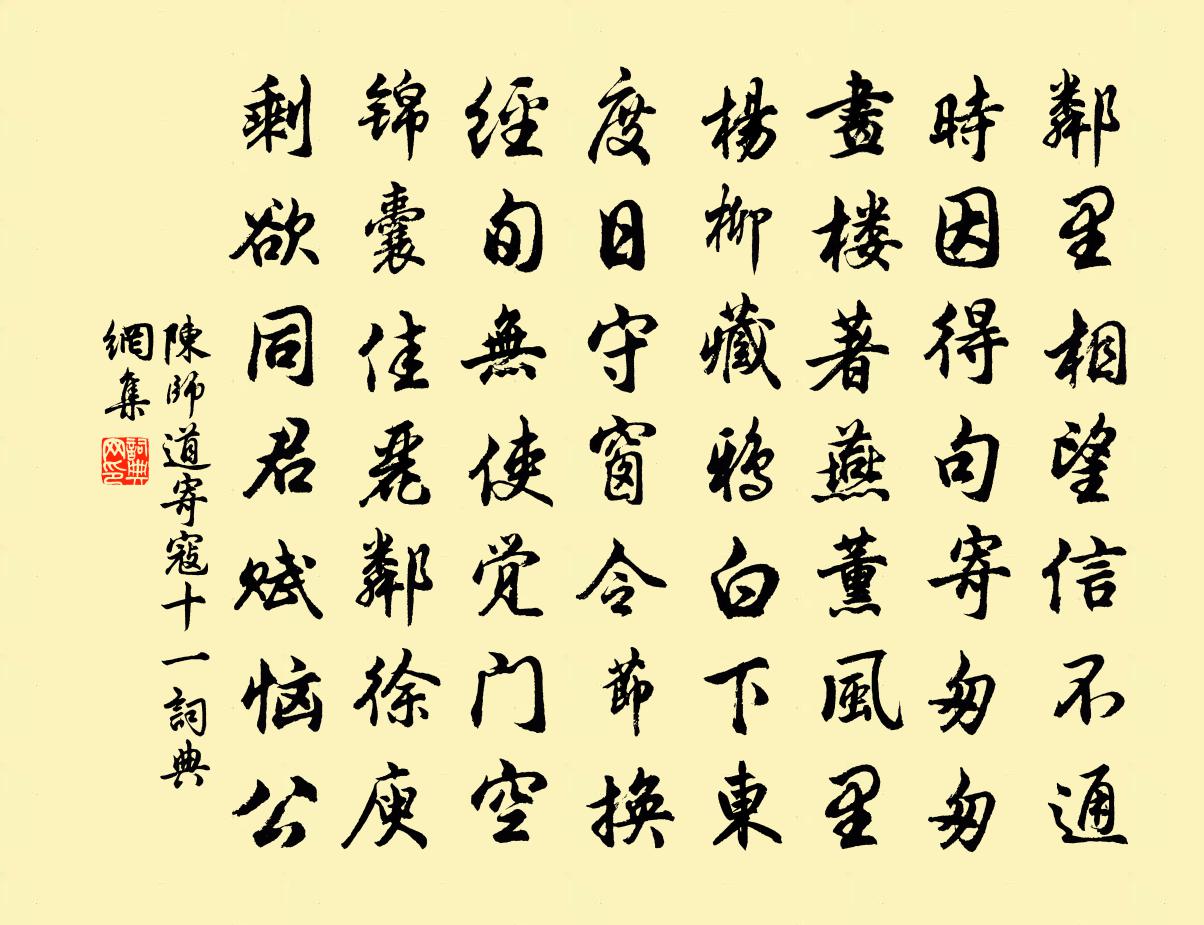 鄰里相望信不通
時因得句寄匆匆
畫楼著燕薰風里
楊柳藏鸦白下東
度日守窗令節換
經旬無使觉门空
锦囊佳麗鄰徐庾
剩欲同君赋恼公
陳師道寄寇十一詞典
網集
詞典
网印